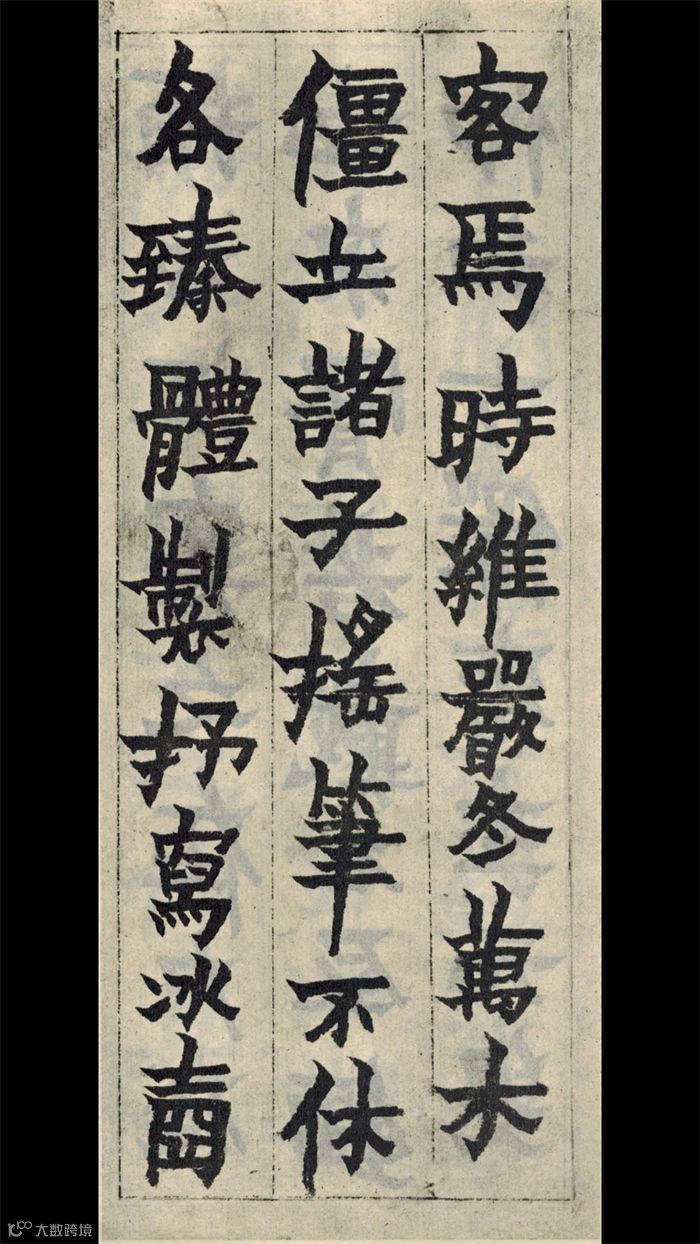 客焉時維嚴冬萬木
僵立諸子搖筆不休
各臻體製抒寫冰壺
大数跨境